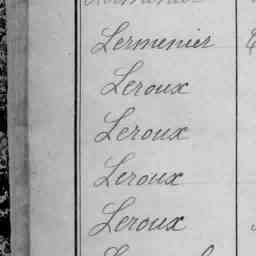 Lermenier
Leroux
Leroux
Leroux
Leroux